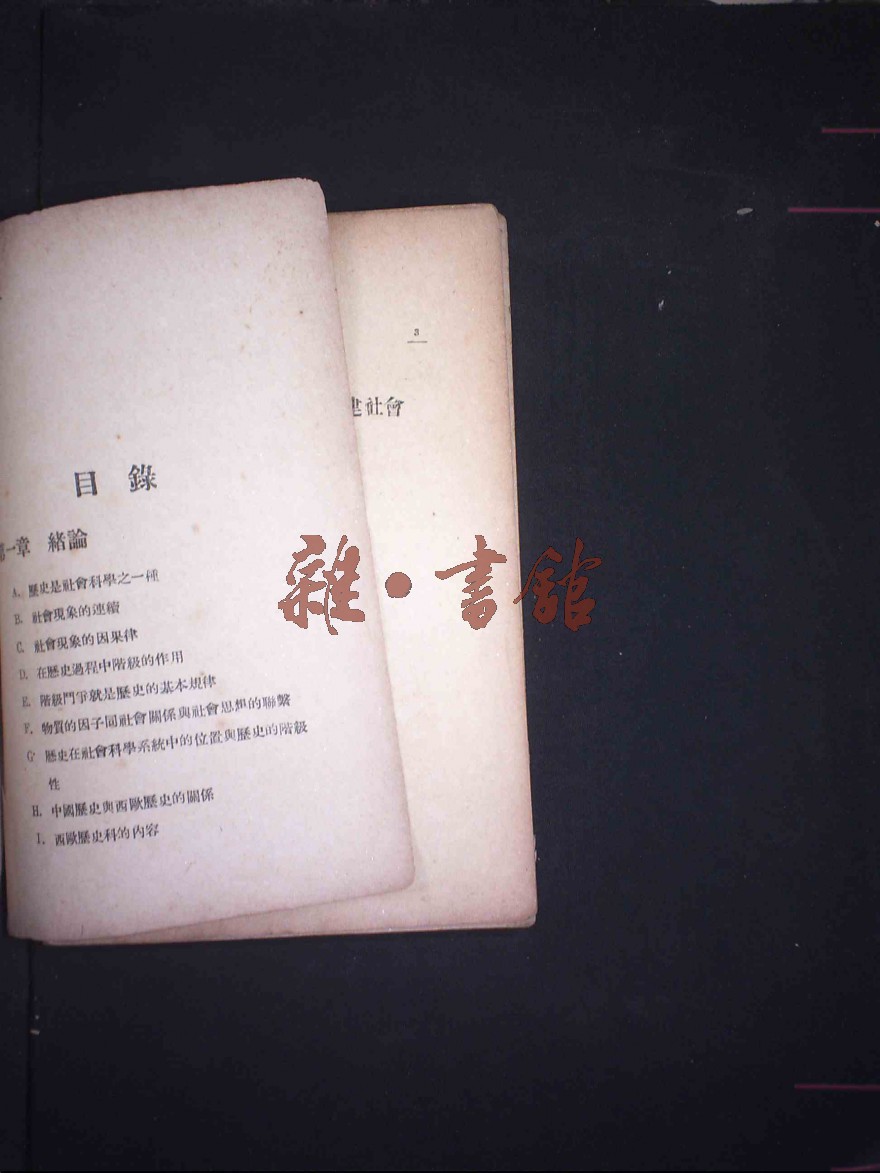 目錄
第一章 緒論
A. 歷史是社會科學之一種
B. 社會現象的連續
C. 社會現象的因果律
D. 在歷史過程中階級的作用
E. 階級鬥爭就是歷史的基本規律
F. 物質的因子同社會關係與社會思想的聯繫
G. 歷史在社會科學系統中的位置與歷史的階級
性
H. 中國歷史與西歐歷史的關係
I. 西歐歷史科的內容
3
社會
雜·書館